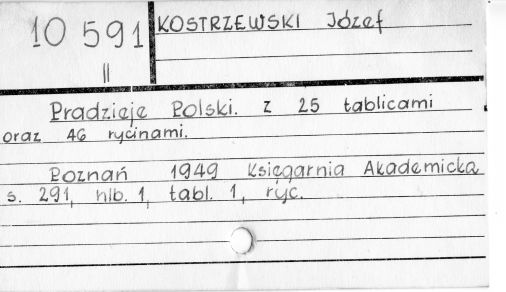 10 591
II
KOSTRZEWSKI Józef
Pradzieje Polski. z 25 tablicami
oraz 46 rycinami.
Poznań 1949 Księgarnia Akademicka
s. 291, nlb. 1, tabl. 1, ryc.